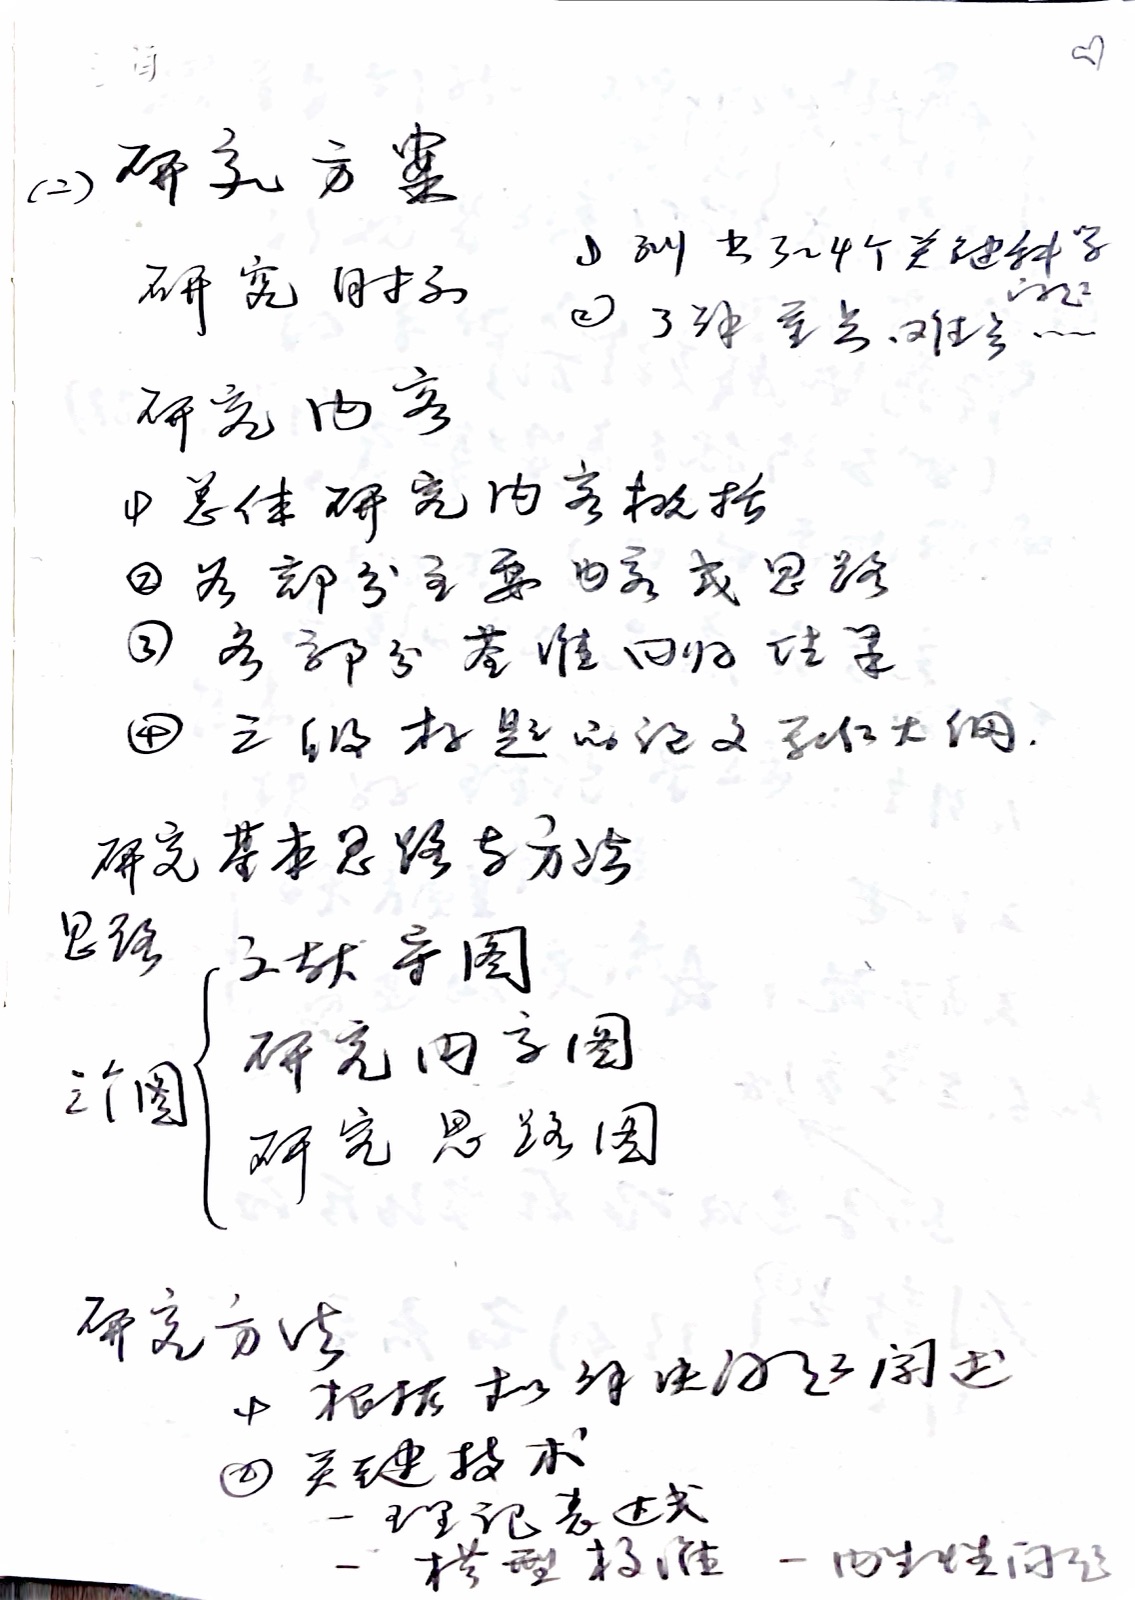 (二) 研究方案
研究目标
① 列出3~4个关键科学
问题
② 了解重点、难点……
研究内容
① 总体研究内容概括
② 各部分主要内容或思路
③ 各部分基准回归结果
④ 三级标题的论文写作大纲.
研究基本思路与方法
思路
三个图
文献导图
研究内容图
研究思路图
研究方法
① 根据拟解决问题阐述
② 关键技术
- 理论表达式
- 模型校准 - 内生性问题